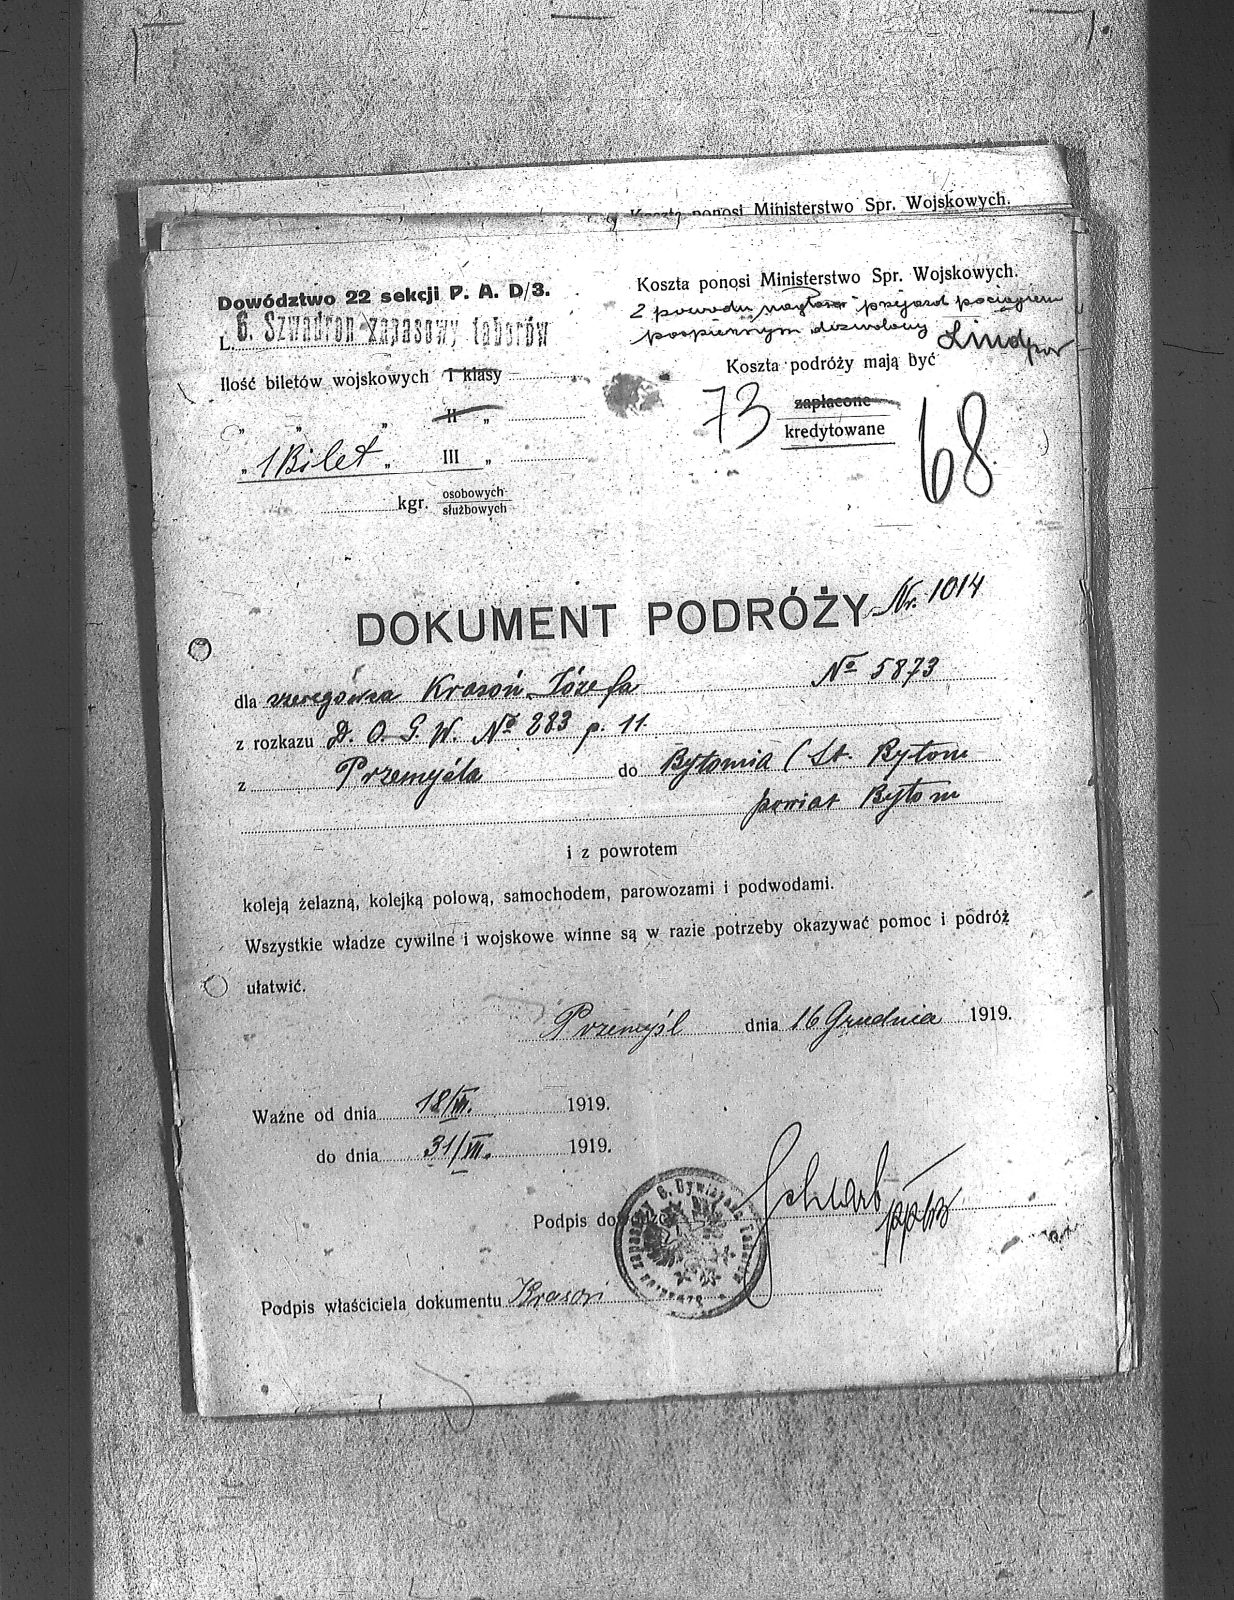 ponosi Ministerstwo Spr. Wojskowych.
Dowództwo 22 sekcji P. A. D/3.
L. 6. Szwadron zapasowy taborów
Koszta ponosi Ministerstwo Spr. Wojskowych.
Z powodu przejazd pociągiem
pospiesznym dozwolony
Ilość biletów wojskowych I klasy
„ „ „ II „
„ 1 Bilet „ III „
kgr. osobowych
służbowych
Koszta podróży mają być
73 zapłacone 68
kredytowane
DOKUMENT PODRÓŻY Nr. 1014
dla szeregowca Krasoń Józefa No 5873
z rozkazu D. O. G. W. No 283 p. 11.
z Przemyśla do Bytomia (St. Bytom
powiat Bytom
i z powrotem
koleją żelazną, kolejką polową, samochodem, parowozami i podwodami.
Wszystkie władze cywilne i wojskowe winne są w razie potrzeby okazywać pomoc i podróż
ułatwić.
Przemyśl dnia 16 Grudnia 1919.
Ważne od dnia 18/XII. 1919.
do dnia 31/XII. 1919.
Podpis
Podpis właściciela dokumentu Krasoń